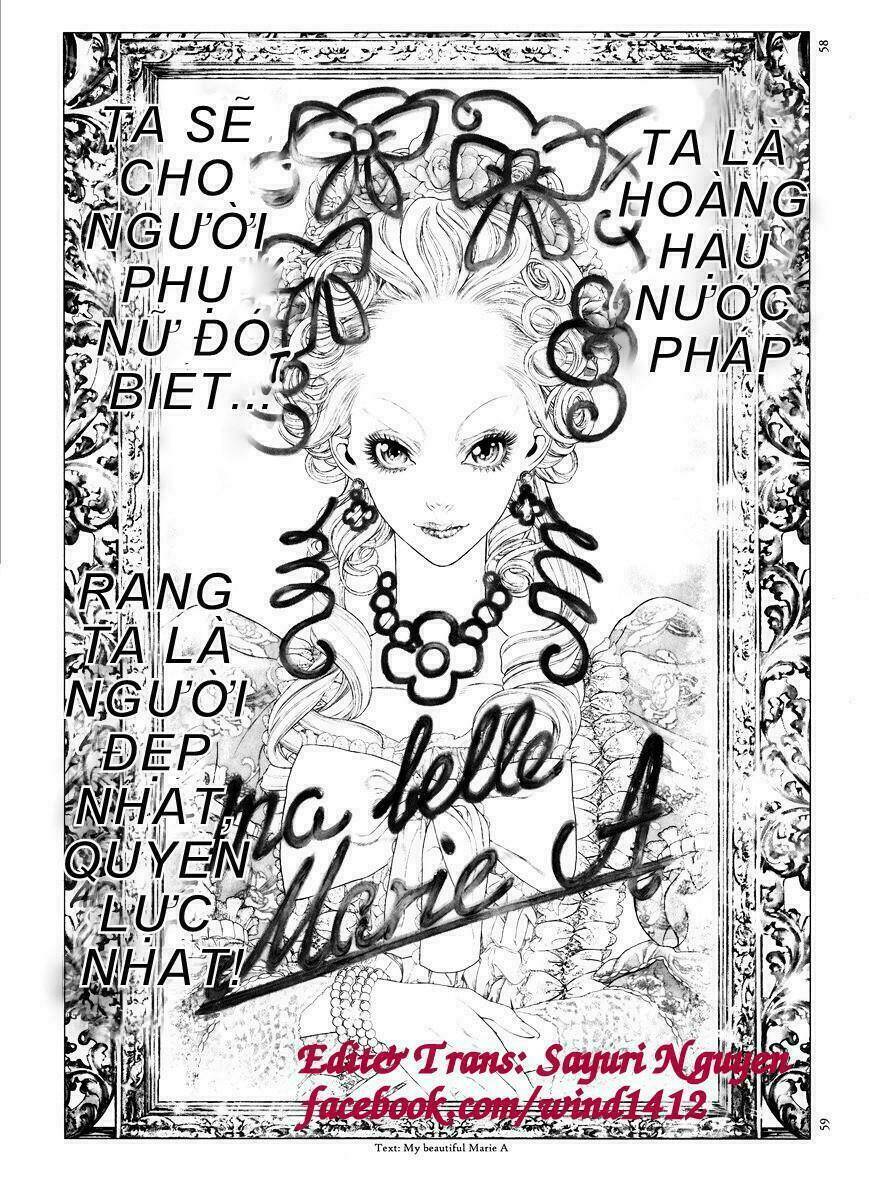 58
TA LÀ
HOÀNG
HẬU
NƯỚC
PHÁP
TA SẼ
CHO
NGƯỜI
PHỤ
NỮ ĐÓ
BIET...
RANG
TA LÀ
NGƯỜI
ĐẸP
NHAT,
QUYEN
LỰC
NHAT!
ma belle
Marie A
Edit& Trans: Sayuri Nguyen
facebook.com/wind1412
59
Text: My beautiful Marie A